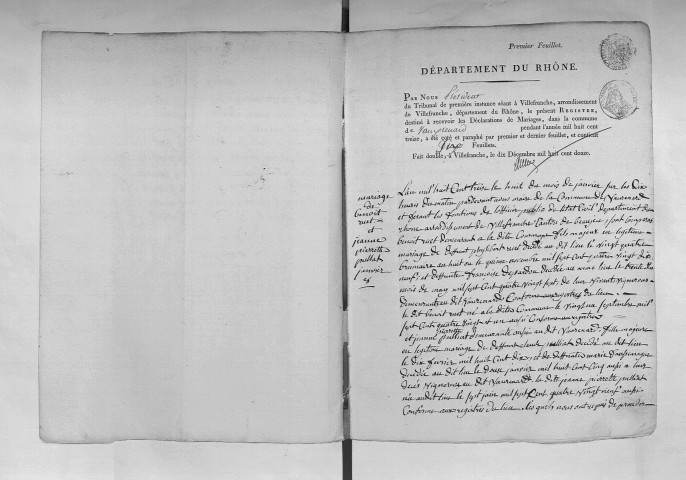 Premier Feuillet.
DÉPARTEMENT DU RHÔNE.
PAR NOUS Président
du Tribunal de première instance séant à Villefranche, arrondissement
de Villefranche, département du Rhône, le présent REGISTRE,
destiné à recevoir les Déclarations de Mariages, dans la commune
de Vauxrenard pendant l'année mil huit cent
treize, a été coté et paraphé par premier et dernier feuillet, et contient
Feuillets.
Fait double, à Villefranche, le dix Décembre mil huit cent douze.
mariage
de
benoit
ruet
et
jeanne
pierrette
pulliat
janvier
L'an mil huit Cent treize le huit du mois de janvier sur les dix
heures du matin pardevant nous maire de la Commune de Vauxrenard
et faisant les fonctions de l'officier public de l'état Civil Département du
rhone arrondissement de Villefranche Canton de beaujeu sont Comparus
benoit ruet demeurant a la dite Commune fils majeur en legitime
mariage de deffunt ruet décédé au dit lieu le vingt quatre
brumaire an huit ou le quinze novembre mil sept cent quatre vingt dix
neuf et deffunte francoise décédée au meme lieu le
mois de may mil sept cent quatre vingt sept, de leur vivant vignerons
demeurant au dit Vauxrenard Conforme aux registres du lieu
le dit benoit ruet né a la dite Commune le vingt un septembre mil
sept Cent quatre vingt et un aussi Conforme aux registres
et jeanne pierrette pulliat demeurante aussi au dit Vauxrenard fille majeure
en legitime mariage de deffunt pulliat décédé au dit lieu
le dix fevrier mil huit Cent dix, et de deffunte marie
décédée au dit lieu le douze janvier mil huit Cent Cinq aussi a leur
décès vignerons au dit Vauxrenard la dite jeanne pierrette pulliat
née au dit lieu le sept juin mil sept Cent quatre vingt neuf aussi
Conforme aux registres du lieu. les quels nous ont requis de proceder